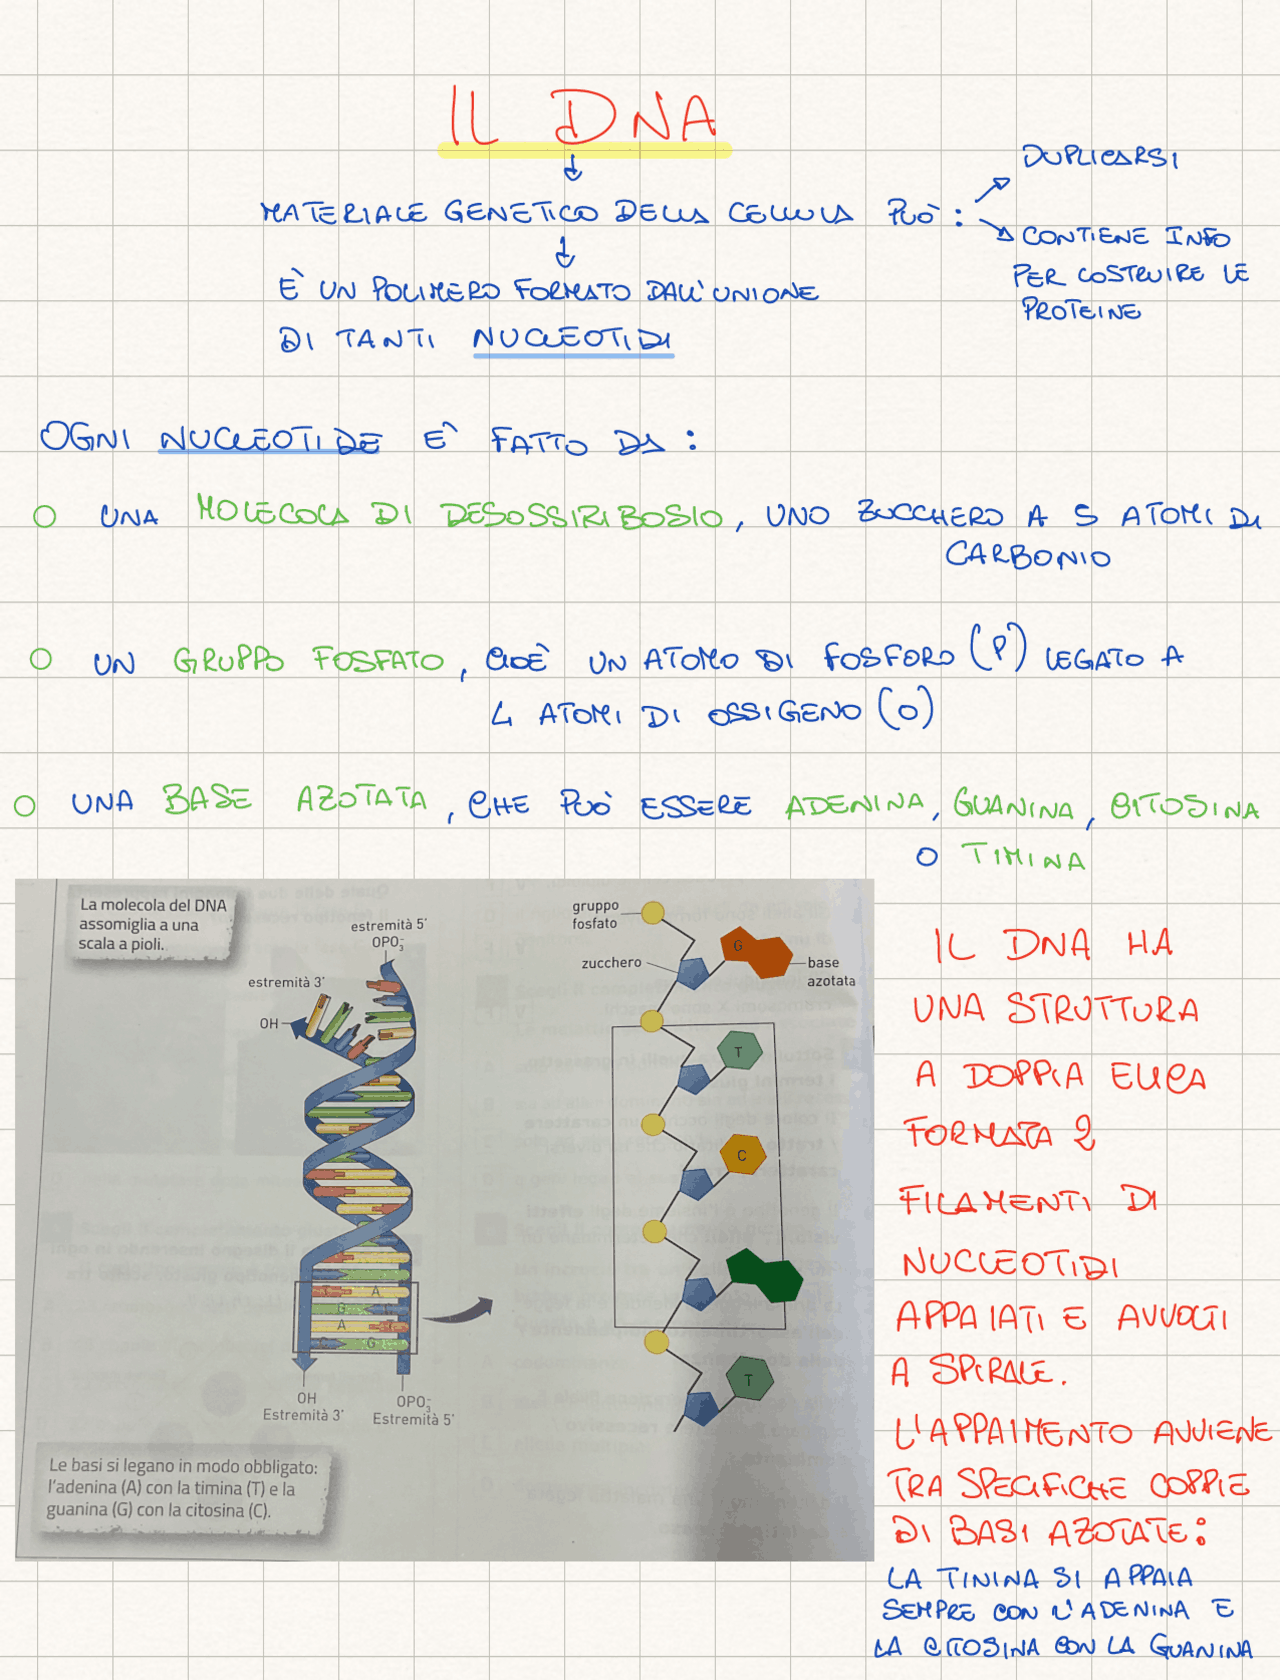 IL DNA
MATERIALE GENETICO DELLA CELLULA PUÒ:
DUPLICARSI
CONTIENE INFO
PER COSTRUIRE LE
PROTEINE
È UN POLIMERO FORMATO DALL'UNIONE
DI TANTI NUCLEOTIDI
OGNI NUCLEOTIDE È FATTO DA:
UNA MOLECOLA DI DESOSSIRIBOSIO, UNO ZUCCHERO A 5 ATOMI DI
CARBONIO
UN GRUPPO FOSFATO, CIOÈ UN ATOMO DI FOSFORO (P) LEGATO A
4 ATOMI DI OSSIGENO (O)
UNA BASE AZOTATA, CHE PUÒ ESSERE ADENINA, GUANINA, CITOSINA
O TIMINA
La molecola del DNA
assomiglia a una
scala a pioli.
estremità 5'
OPO₃⁻
estremità 3'
OH
A
G
A
G
OH
Estremità 3'
OPO₃⁻
Estremità 5'
Le basi si legano in modo obbligato:
l'adenina (A) con la timina (T) e la
guanina (G) con la citosina (C).
gruppo
fosfato
zucchero
G
base
azotata
T
C
T
IL DNA HA
UNA STRUTTURA
A DOPPIA ELICA
FORMATA 2
FILAMENTI DI
NUCLEOTIDI
APPAIATI E AVVOLTI
A SPIRALE.
L'APPAIMENTO AVVIENE
TRA SPECIFICHE COPPIE
DI BASI AZOTATE:
LA TININA SI APPAIA
SEMPRE CON L'ADENINA E
LA CITOSINA CON LA GUANINA